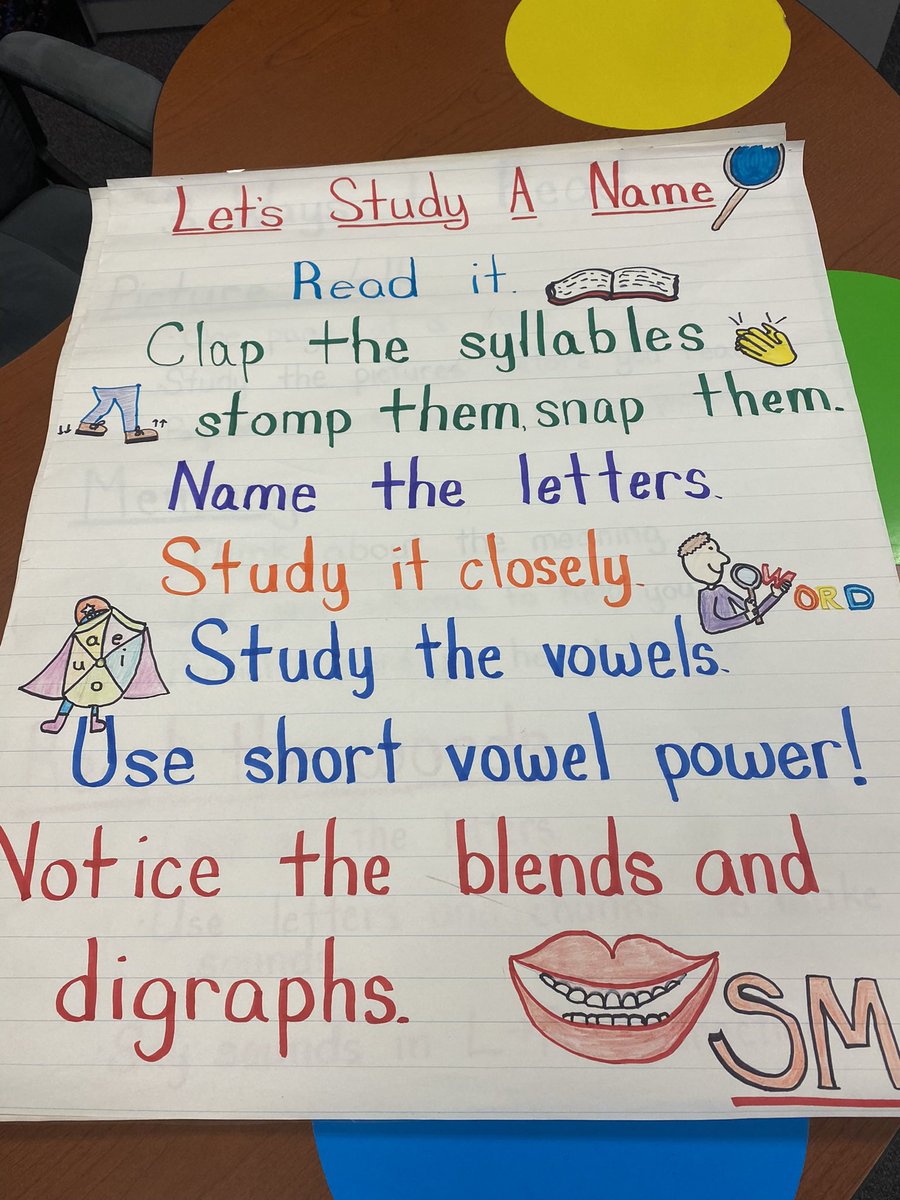 Let's Study A Name
Read it.
Clap the syllables
stomp them, snap them.
Name the letters.
Study it closely.
WORD
a e i o u
Study the vowels.
Use short vowel power!
Notice the blends and
digraphs.
SM